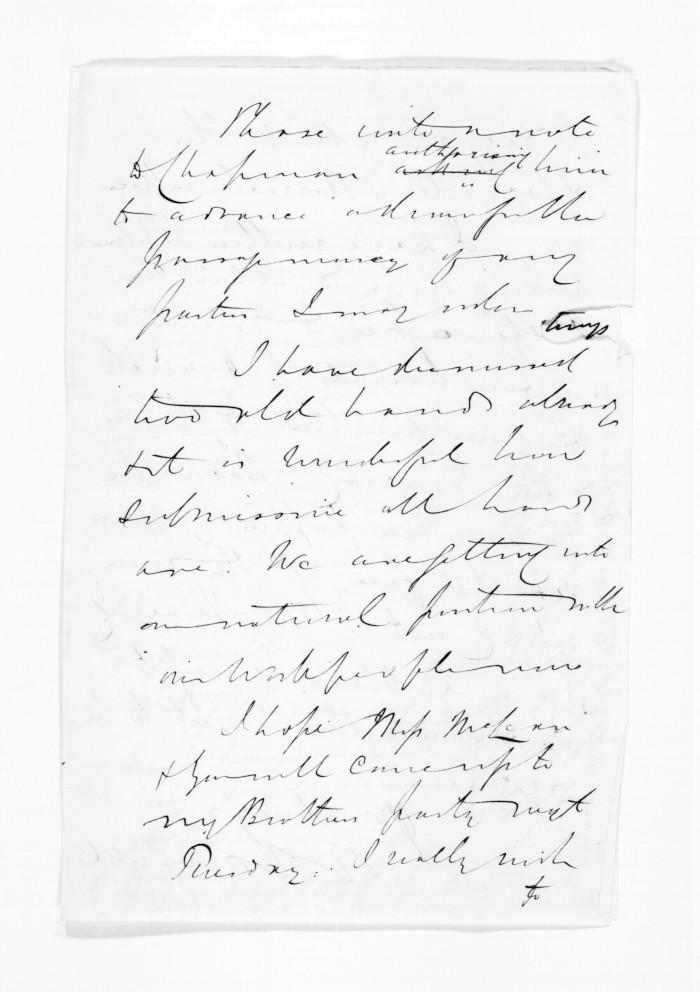 Please write a note
to Chapman authorising him
to advance
passage money of any
parties I may order
I have dismissed
two old hands already
& it is wonderful how
submissive all hands
are. We are getting into
our natural position with
our Work people now
I hope Miss McLean
& you will come up to
my Brothers party next
Tuesday. I really wish
to